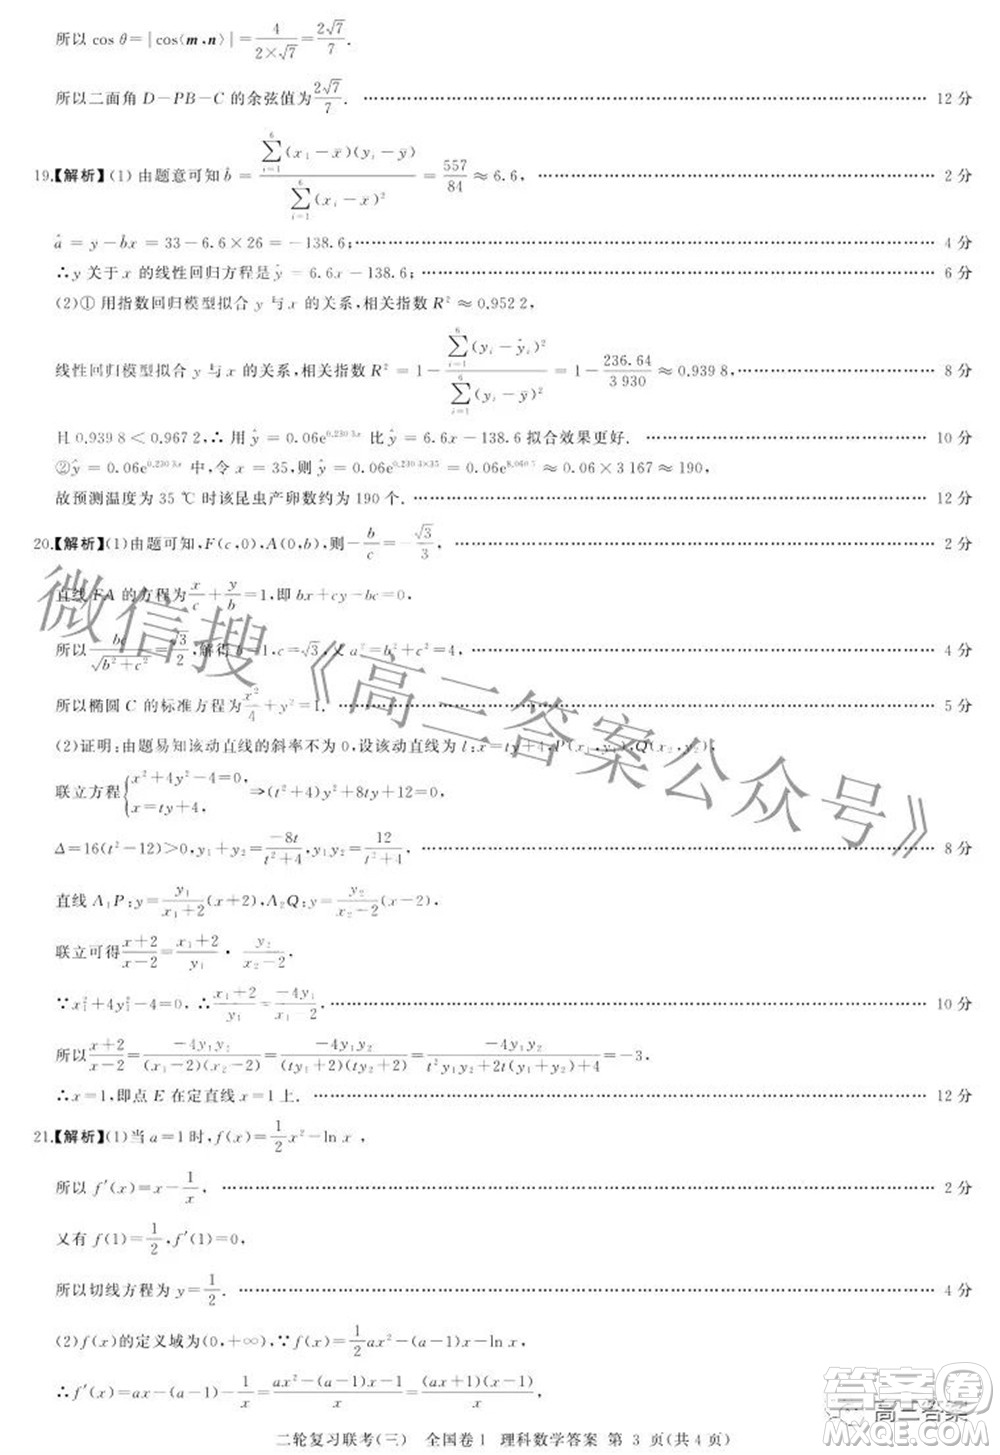 所以 cos θ=|cos⟨m,n⟩|=4/(2×√7)=2√7/7.
所以二面角 D-PB-C 的余弦值为2√7/7. …… 12 分
19.【解析】(1) 由题意可知 b̂=∑_{i=1}^{6}(x_i-x̄)(y_i-ȳ)/∑_{i=1}^{6}(x_i-x̄)²=557/84≈6.6, …… 2 分
â=y-b̂x=33-6.6×26=-138.6; …… 4 分
∴y 关于 x 的线性回归方程是 ŷ=6.6x-138.6; …… 6 分
(2)① 用指数回归模型拟合 y 与 x 的关系,相关指数 R²≈0.952 2,
线性回归模型拟合 y 与 x 的关系,相关指数 R²=1-∑_{i=1}^{6}(y_i-ŷ_i)²/∑_{i=1}^{6}(y_i-ȳ)²=1-236.64/3 930≈0.939 8, …… 8 分
且 0.939 8<0.967 2,∴ 用 ŷ=0.06e^{0.230 3x} 比 ŷ=6.6x-138.6 拟合效果更好. …… 10 分
②ŷ=0.06e^{0.230 3x} 中,令 x=35,则 ŷ=0.06e^{0.230 3×35}=0.06e^{8.060 5}≈0.06×3 167≈190,
故预测温度为 35 ℃ 时该昆虫产卵数约为 190 个. …… 12 分
20.【解析】(1)由题可知,F(c,0),A(0,b),则-b/c=-√3/3, …… 2 分
直线 FA 的方程为x/c+y/b=1,即 bx+cy-bc=0,
所以bc/√(b²+c²)=√3/2,解得 b=1,c=√3,又 a²=b²+c²=4, …… 4 分
所以椭圆 C 的标准方程为x²/4+y²=1. …… 5 分
(2)证明:由题易知该动直线的斜率不为 0,设该动直线为 l:x=ty+4,P(x₁,y₁),Q(x₂,y₂),
联立方程{x²+4y²-4=0, x=ty+4,⇒(t²+4)y²+8ty+12=0,
Δ=16(t²-12)>0,y₁+y₂=-8t/(t²+4),y₁y₂=12/(t²+4). …… 8 分
直线 A₁P:y=y₁/(x₁+2)(x+2),A₂Q:y=y₂/(x₂-2)(x-2),
联立可得(x+2)/(x-2)=(x₁+2)/y₁·y₂/(x₂-2).
∵x₁²+4y₁²-4=0,∴(x₁+2)/y₁=-4y₁/(x₁-2). …… 10 分
所以(x+2)/(x-2)=-4y₁y₂/((x₁-2)(x₂-2))=-4y₁y₂/((ty₁+2)(ty₂+2))=-4y₁y₂/(t²y₁y₂+2t(y₁+y₂)+4)=-3,
∴x=1,即点 E 在定直线 x=1 上. …… 12 分
21.【解析】(1)当 a=1 时,f(x)=1/2x²-ln x,
所以 f′(x)=x-1/x, …… 2 分
又有 f(1)=1/2,f′(1)=0,
所以切线方程为 y=1/2. …… 4 分
(2)f(x)的定义域为(0,+∞),∵f(x)=1/2ax²-(a-1)x-ln x,
∴f′(x)=ax-(a-1)-1/x=(ax²-(a-1)x-1)/x=(ax+1)(x-1)/x,
二轮复习联考(三) 全国卷1 理科数学答案 第 3 页(共4页)
微信搜《高三答案公众号》
答案卷
高三答案